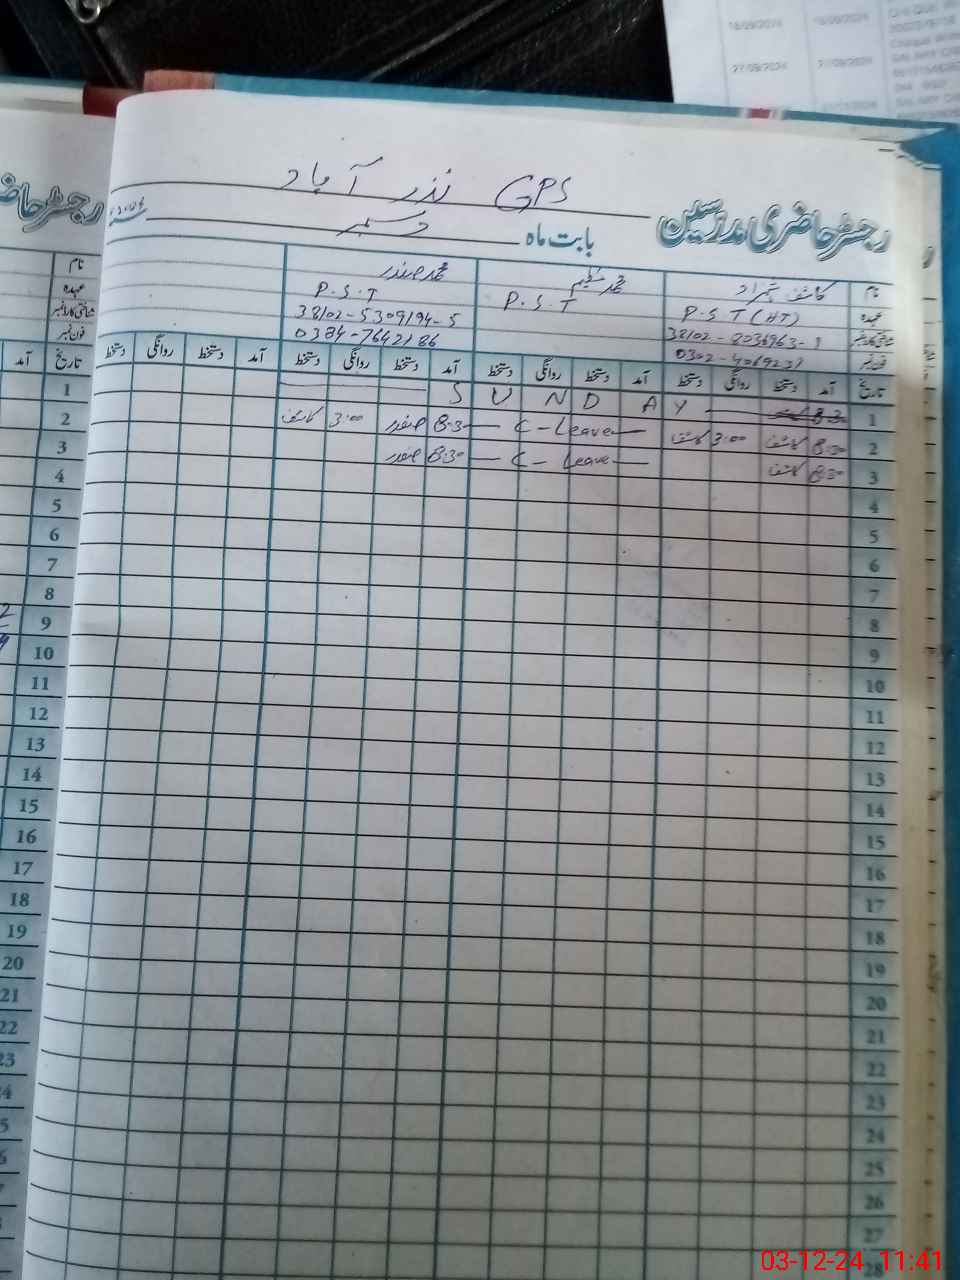 GPS نذر آباد
رجسٹر حاضری مدرسین
بابت ماہ دسمبر
نام کاشف شہزاد محمد عظیم محمد صفدر
عہدہ P.S.T (HT) P.S.T P.S.T
شناختی کارڈ نمبر 38102-5309194-5
فون نمبر 0384-7642186
تاریخ آمد دستخط روانگی دستخط آمد دستخط روانگی دستخط آمد دستخط روانگی دستخط آمد دستخط روانگی دستخط
1 S U N D A Y
2 8:30 کاشف 3:00 کاشف — C-Leave — 8:30 صفدر 3:00 کاشف
3 8:30 کاشف — C-Leave — 8:30 صفدر
4
5
6
7
8
9
10
11
12
13
14
15
16
17
18
19
20
21
22
23
24
25
26
27
28
رجسٹر حاضری
نام
عہدہ
شناختی کارڈ نمبر
فون نمبر
تاریخ آمد
1
2
3
4
5
6
7
8
9
10
11
12
13
14
15
16
17
18
19
20
21
22
23
18/09/2024
27/09/2024
03-12-24 11:41